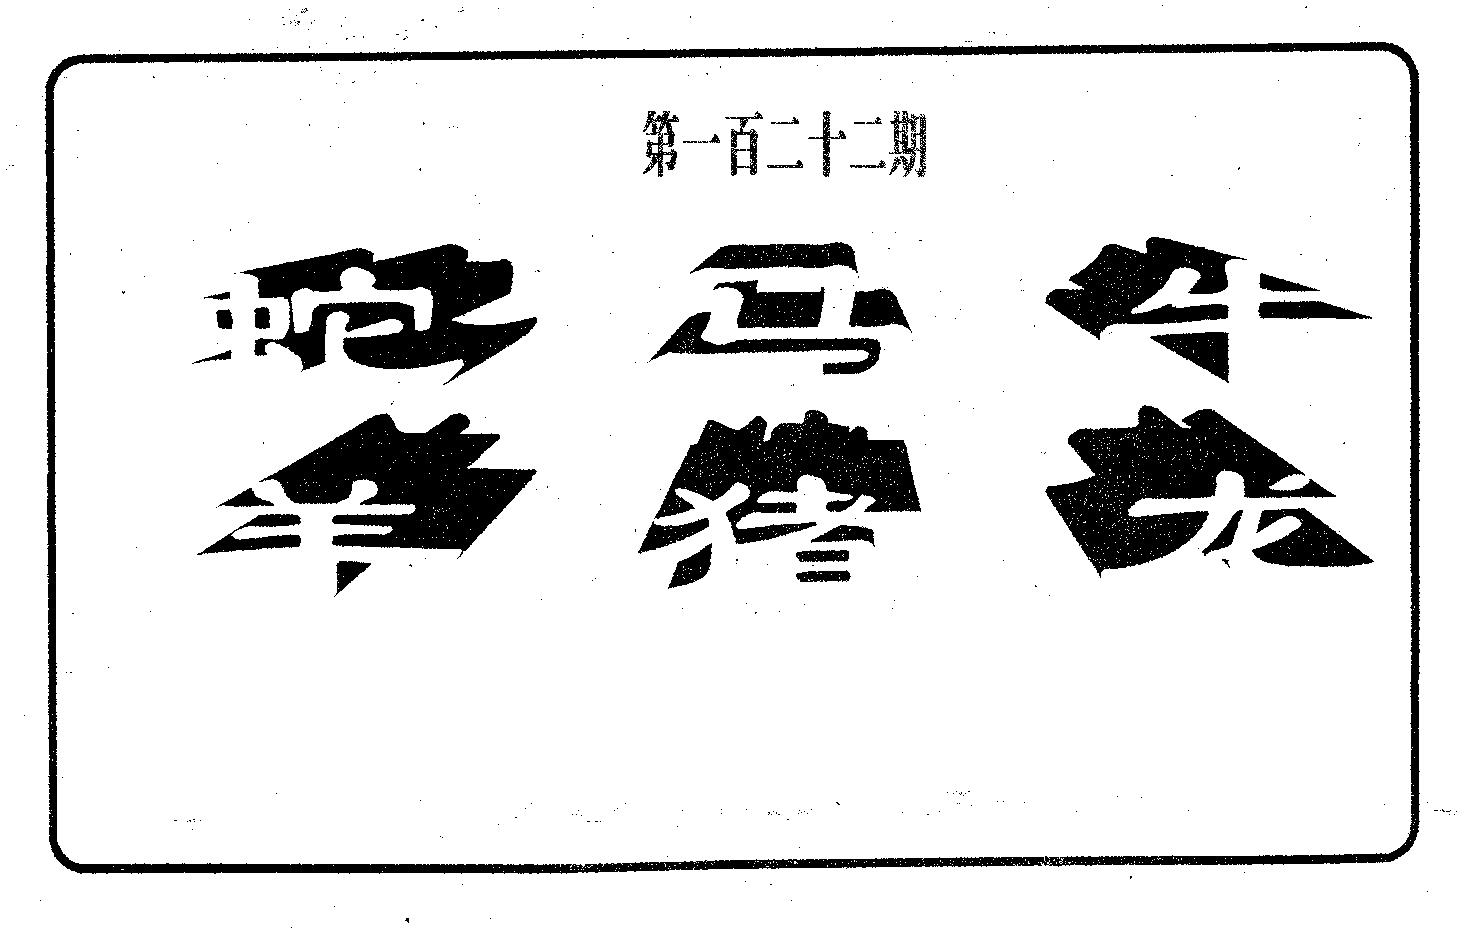 第一百二十二期
蛇 马 牛
羊 猪 龙